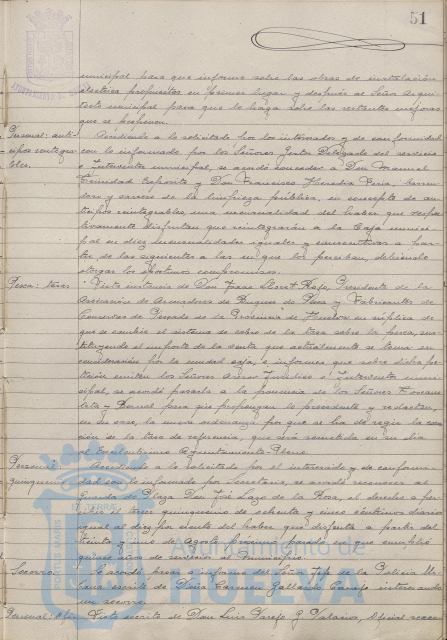 51
municipal para que informe sobre las obras de instalación
eléctrica propuestas en primer lugar y después al Señor Arqui-
tecto municipal para que lo haga sobre las restantes mejoras
que se proponen.
Personal: anti- Accediendo a lo solicitado por los interesados y de conformidad
cipos reintegra- con lo informado por los Señores Gestor Delegado del servicio
bles. e Interventor municipal, se acordó conceder a Don Manuel
Trinidad Expósito y Don Francisco Heredia Feria, barren-
dero y carrero de la limpieza pública, en concepto de an-
ticipos reintegrables, una mensualidad del haber que respec-
tivamente disfrutan que reintegrarán a la Caja munici-
pal en diez mensualidades iguales y consecutivas a par-
tir de las siguientes a las en que los perciban, debiendo
otorgar los oportunos compromisos.
Pesca: tasas Vista instancia de Don Presidente de la
Asociación de Armadores de Buques de Pesca y Fabricantes de
Conservas de Pescado de la Provincia de Huelva en súplica de
que se cambie el sistema de cobro de la tasa sobre la pesca, sus-
tituyendo el importe de la venta que actualmente se toma en
consideración por la unidad caja, e informes que sobre dicha pe-
tición emiten los Señores Asesor Jurídico e Interventor muni-
cipal, se acordó pasarla a la ponencia de los Señores
y para que propongan lo procedente y redacten,
en su caso, la nueva ordenanza por que se ha de regir la exac-
ción de la tasa de referencia, que será sometida en su día
al Excelentísimo Ayuntamiento Pleno.
Personal: Accediendo a lo solicitado por el interesado y de conformi-
quinquenio dad con lo informado por Secretaría, se acordó reconocer al
Guarda de Plaza Don José Lazo de la Rosa, el derecho a per-
cibir el tercer quinquenio de ochenta y cinco céntimos diarios
igual al diez por ciento del haber que disfruta a partir del
treinta y uno de Agosto próximo pasado en que cumplió
quince años de servicio al Municipio.
Socorro: Se acordó pasar a informe del Señor Jefe de la Policía Ur-
bana escrito de Doña Carmen Gallardo interesando
un socorro.
Personal: Visto escrito de Don Luis Oficial
Ayuntamiento de
HUELVA
PORTUS MARIS